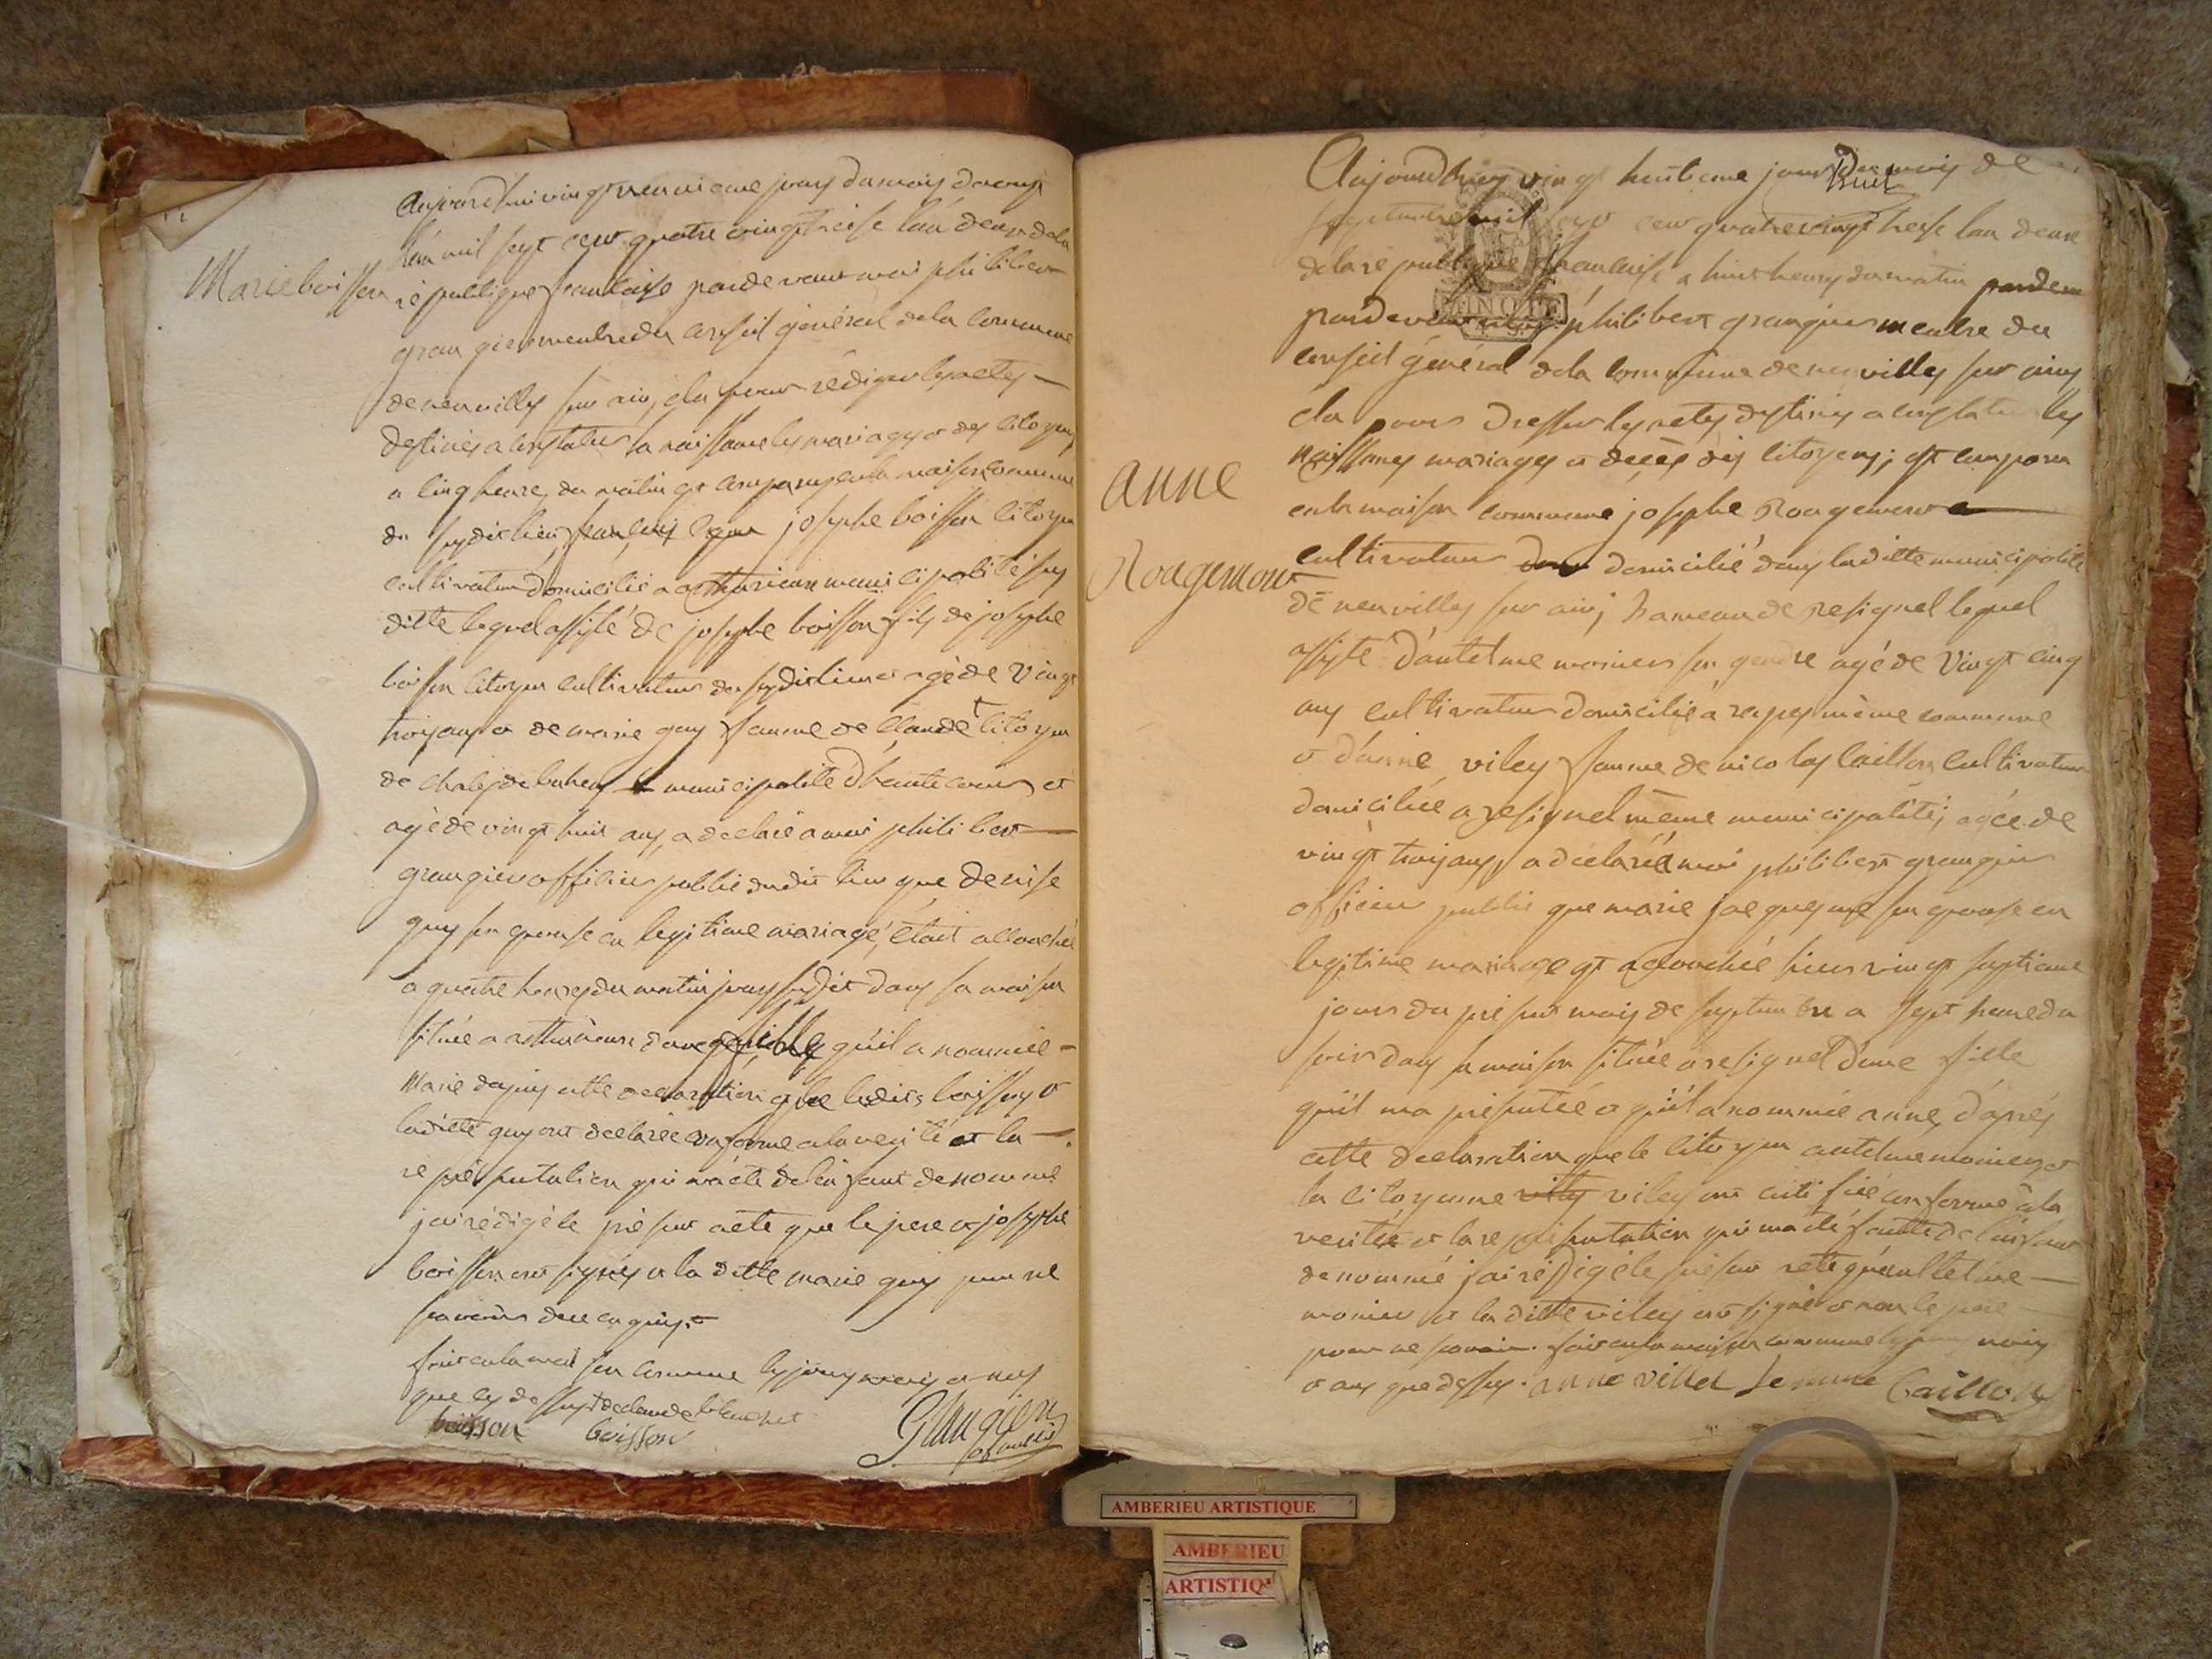 Marie boisson
aujourdhui vingt neuvieme jours du mois daoust
lan mil sept cent quatre vingt treise lan deux dela
république francaise pardevant moi philibert
grangier membre du conseil général dela commune
de neuville sur ain, elu pour rédiger les actes
destinés a constater la naissance les mariages et des citoyens
a cinq heures du matin est comparus en la maison commune
du susdit lieu joseph boisson citoyen
cultivateur domicilié a municipalité sus
ditte lequel assisté de joseph boisson fils de joseph
boisson citoyen cultivateur du susdit lieu et agé de vingt
trois ans et de marie guy famme de claude + citoyen
de municipalité d'hautecour et
agé de vingt huit ans, a déclaré a moi philibert
grangier officier public dudit lieu que denise
guy son epouse en legitime mariage, était accouchée
a quatre heures du matin jours susdit dans sa maison
située a d'une fille qu'il a nommée
Marie depuis cette declaration que lesdits boisson et
laditte guy ont declarée conforme a la verité et la
représentation qui m'a été de l'enfant denommé
jai rédigé le présent acte que le pere et joseph
boisson ont signés et la ditte marie guy pour ne
savoir de ce enquis
fait en la maison commune les jours mois et ans
que cy dessus + de claude
boisson boisson Grangier
of public
anne
Rougemont
Aujourdhuy vingt huitieme jours du mois de
septembre mil sept cent quatre vingt treise lan deux
dela republique francaise a huit heures du matin parde
pardevant moi philibert grangier membre du
conseil général dela commune de neuville sur ain
elu pour dresser les actes destinés a constater les
naissances mariages et décès des citoyens; est comparu
en la maison commune joseph Rougemont
cultivateur domicilié dans laditte municipalité
de neuville sur ain, hameau de resignel lequel
assisté d'antelme monier son gendre agé de vingt cinq
ans cultivateur domicilié a même commune
et d'anne viley famme de nicolas caillon cultivateur
domiciliée a resignel même municipalité; agée de
vingt trois ans, a déclaré a moi philibert grangier
officier public que marie son epouse en
legitime mariage est acouchée hiers vingt septieme
jours du present mois de septembre a sept heure du
soir dans sa maison située a resignel d'une fille
qu'il m'a présentée et qu'il a nommée anne, d'après
cette declaration que le citoyen antelme monier et
la citoyenne viley ont certifiée conforme a la
verité et la représentation qui m'a été faitte de l'enfant
denommé jai rédigé le présent acte
monier et laditte viley ont signé et non le pere
pour ne savoir. fait en la maison commune les jours mois
et ans que dessus. anne villet femme Caillon
AMBERIEU ARTISTIQUE
AMBERIEU
ARTISTIQ